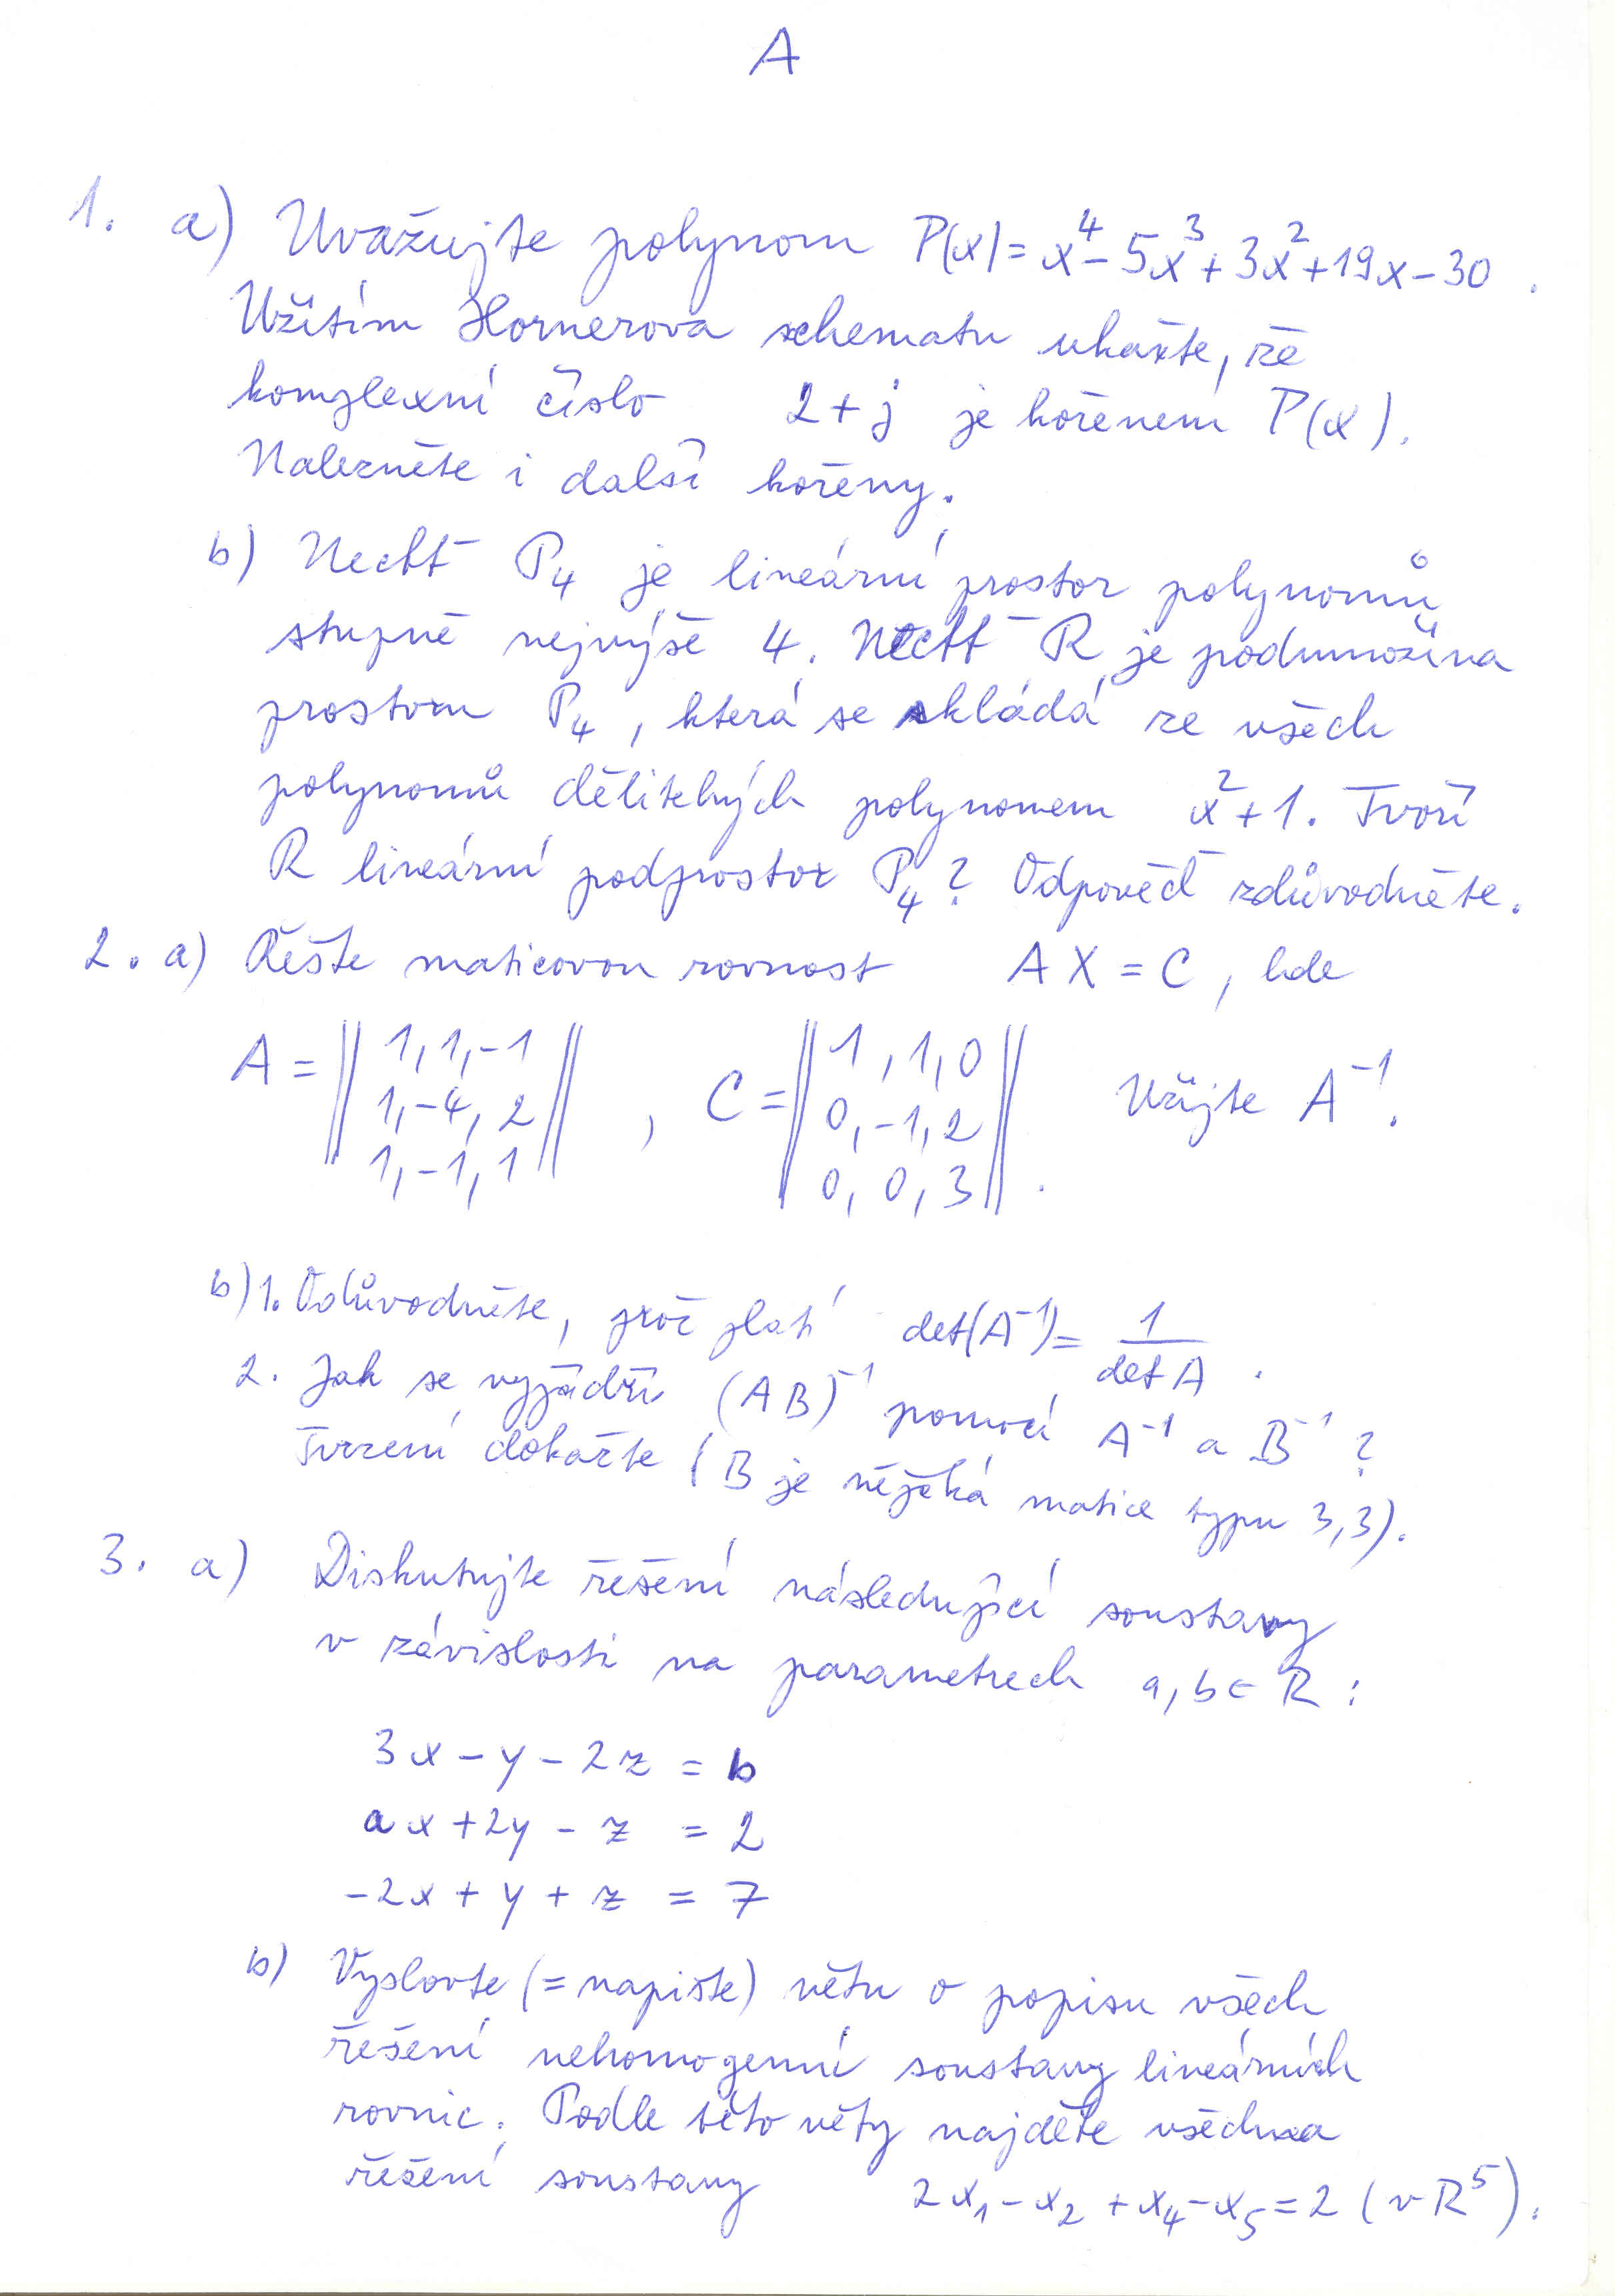 A
1. a) Uvažujte polynom P(x) = x⁴ - 5x³ + 3x² + 19x - 30 .
Užitím Hornerova schematu ukažte, že
komplexní číslo 2 + j je kořenem P(x).
Nalezněte i další kořeny.
b) Nechť P₄ je lineární prostor polynomů
stupně nejvýše 4. Nechť R je podmnožina
prostoru P₄, která se skládá ze všech
polynomů dělitelných polynomem x² + 1. Tvoří
R lineární podprostor P₄? Odpověď zdůvodněte.
2. a) Řešte maticovou rovnost AX = C, kde
A = || 1, 1, -1 || , C = || 1, 1, 0 || Užijte A⁻¹.
1, -4, 2 0, -1, 2
1, -1, 1 0, 0, 3 .
b) 1. Odůvodněte, proč platí det(A⁻¹) = 1/det A .
2. Jak se vyjádří (AB)⁻¹ pomocí A⁻¹ a B⁻¹ ?
Tvrzení dokažte (B je nějaká matice typu 3,3).
3. a) Diskutujte řešení následující soustavy
v závislosti na parametrech a, b ∈ R :
3x - y - 2z = b
ax + 2y - z = 2
-2x + y + z = 7
b) Vyslovte (= napište) větu o popisu všech
řešení nehomogenní soustavy lineárních
rovnic. Podle této věty najděte všechna
řešení soustavy 2x₁ - x₂ + x₄ - x₅ = 2 (v R⁵).